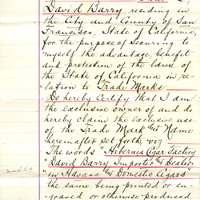 David Barry residing in
the City and County of San
Francisco, State of California,
for the purpose of securing to
myself the advantage, benefit
and protection of the laws of
the State of California in re-
lation to Trade Marks
Do hereby Certify that I am
the exclusive owner of and do
hereby claim the exclusive use
of the Trade Mark and Name
hereinafter set forth, viz:
The words "Hibernia Cigar Factory
David Barry Importer and Dealer
in Havana and Domestic Cigars
the same being printed or en-
graved or otherwise produced